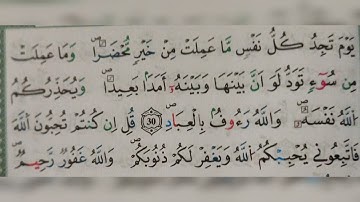 يَوْمَ تَجِدُ كُلُّ نَفْسٍ مَّا عَمِلَتْ مِنْ خَيْرٍ مُّحْضَرًا ۛ وَمَا عَمِلَتْ
مِنْ سُوْٓءٍ ۛ تَوَدُّ لَوْ اَنَّ بَيْنَهَا وَبَيْنَهٗ اَمَدًا بَعِيدًا ۗ وَيُحَذِّرُكُمُ
اللّٰهُ نَفْسَهٗ ۗ وَاللّٰهُ رَءُوفٌ بِالْعِبَادِ ۝30 قُلْ اِنْ كُنْتُمْ تُحِبُّونَ اللّٰهَ
فَاتَّبِعُونِي يُحْبِبْكُمُ اللّٰهُ وَيَغْفِرْ لَكُمْ ذُنُوبَكُمْ ۗ وَاللّٰهُ غَفُورٌ رَّحِيمٌ